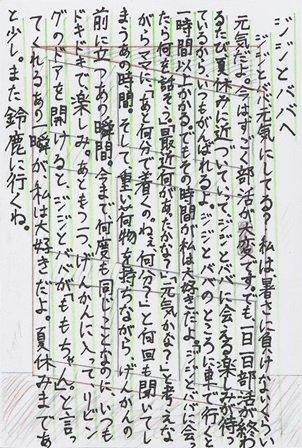 ジジとババへ
ジジとババ元気にしてる？私は暑さに負けないくらい
元気だよ。今はすごく部活が大変です。でも一日一日部活が終わ
るたび夏休みに近づいていて、ジジとババに会える楽しみが待
ているからいつもがんばれるよ。ジジとババのところに車で行く
一時間以上かかる。でもその時間が私は大好きだよ。ジジとババに会っ
たら何を話そう。「最近何があたかな？」「元気かな？」と考えな
がらママに、「あと何分で着くのねぇ何分？」と何回も聞いてし
まうあの時間。そして重い荷物を持ちながら、げんかんの
前に立つあの瞬間。今まで何度も同じことなのに、いつも
ドキドキで楽しみ。あともう一つ、げんかんに入って、リビン
グのドアを開けると、ジジとババが「ももちゃん」と言っ
てくれるあの一瞬が私は大好きだよ。夏休みまであ
と少し。また鈴鹿に行くね。